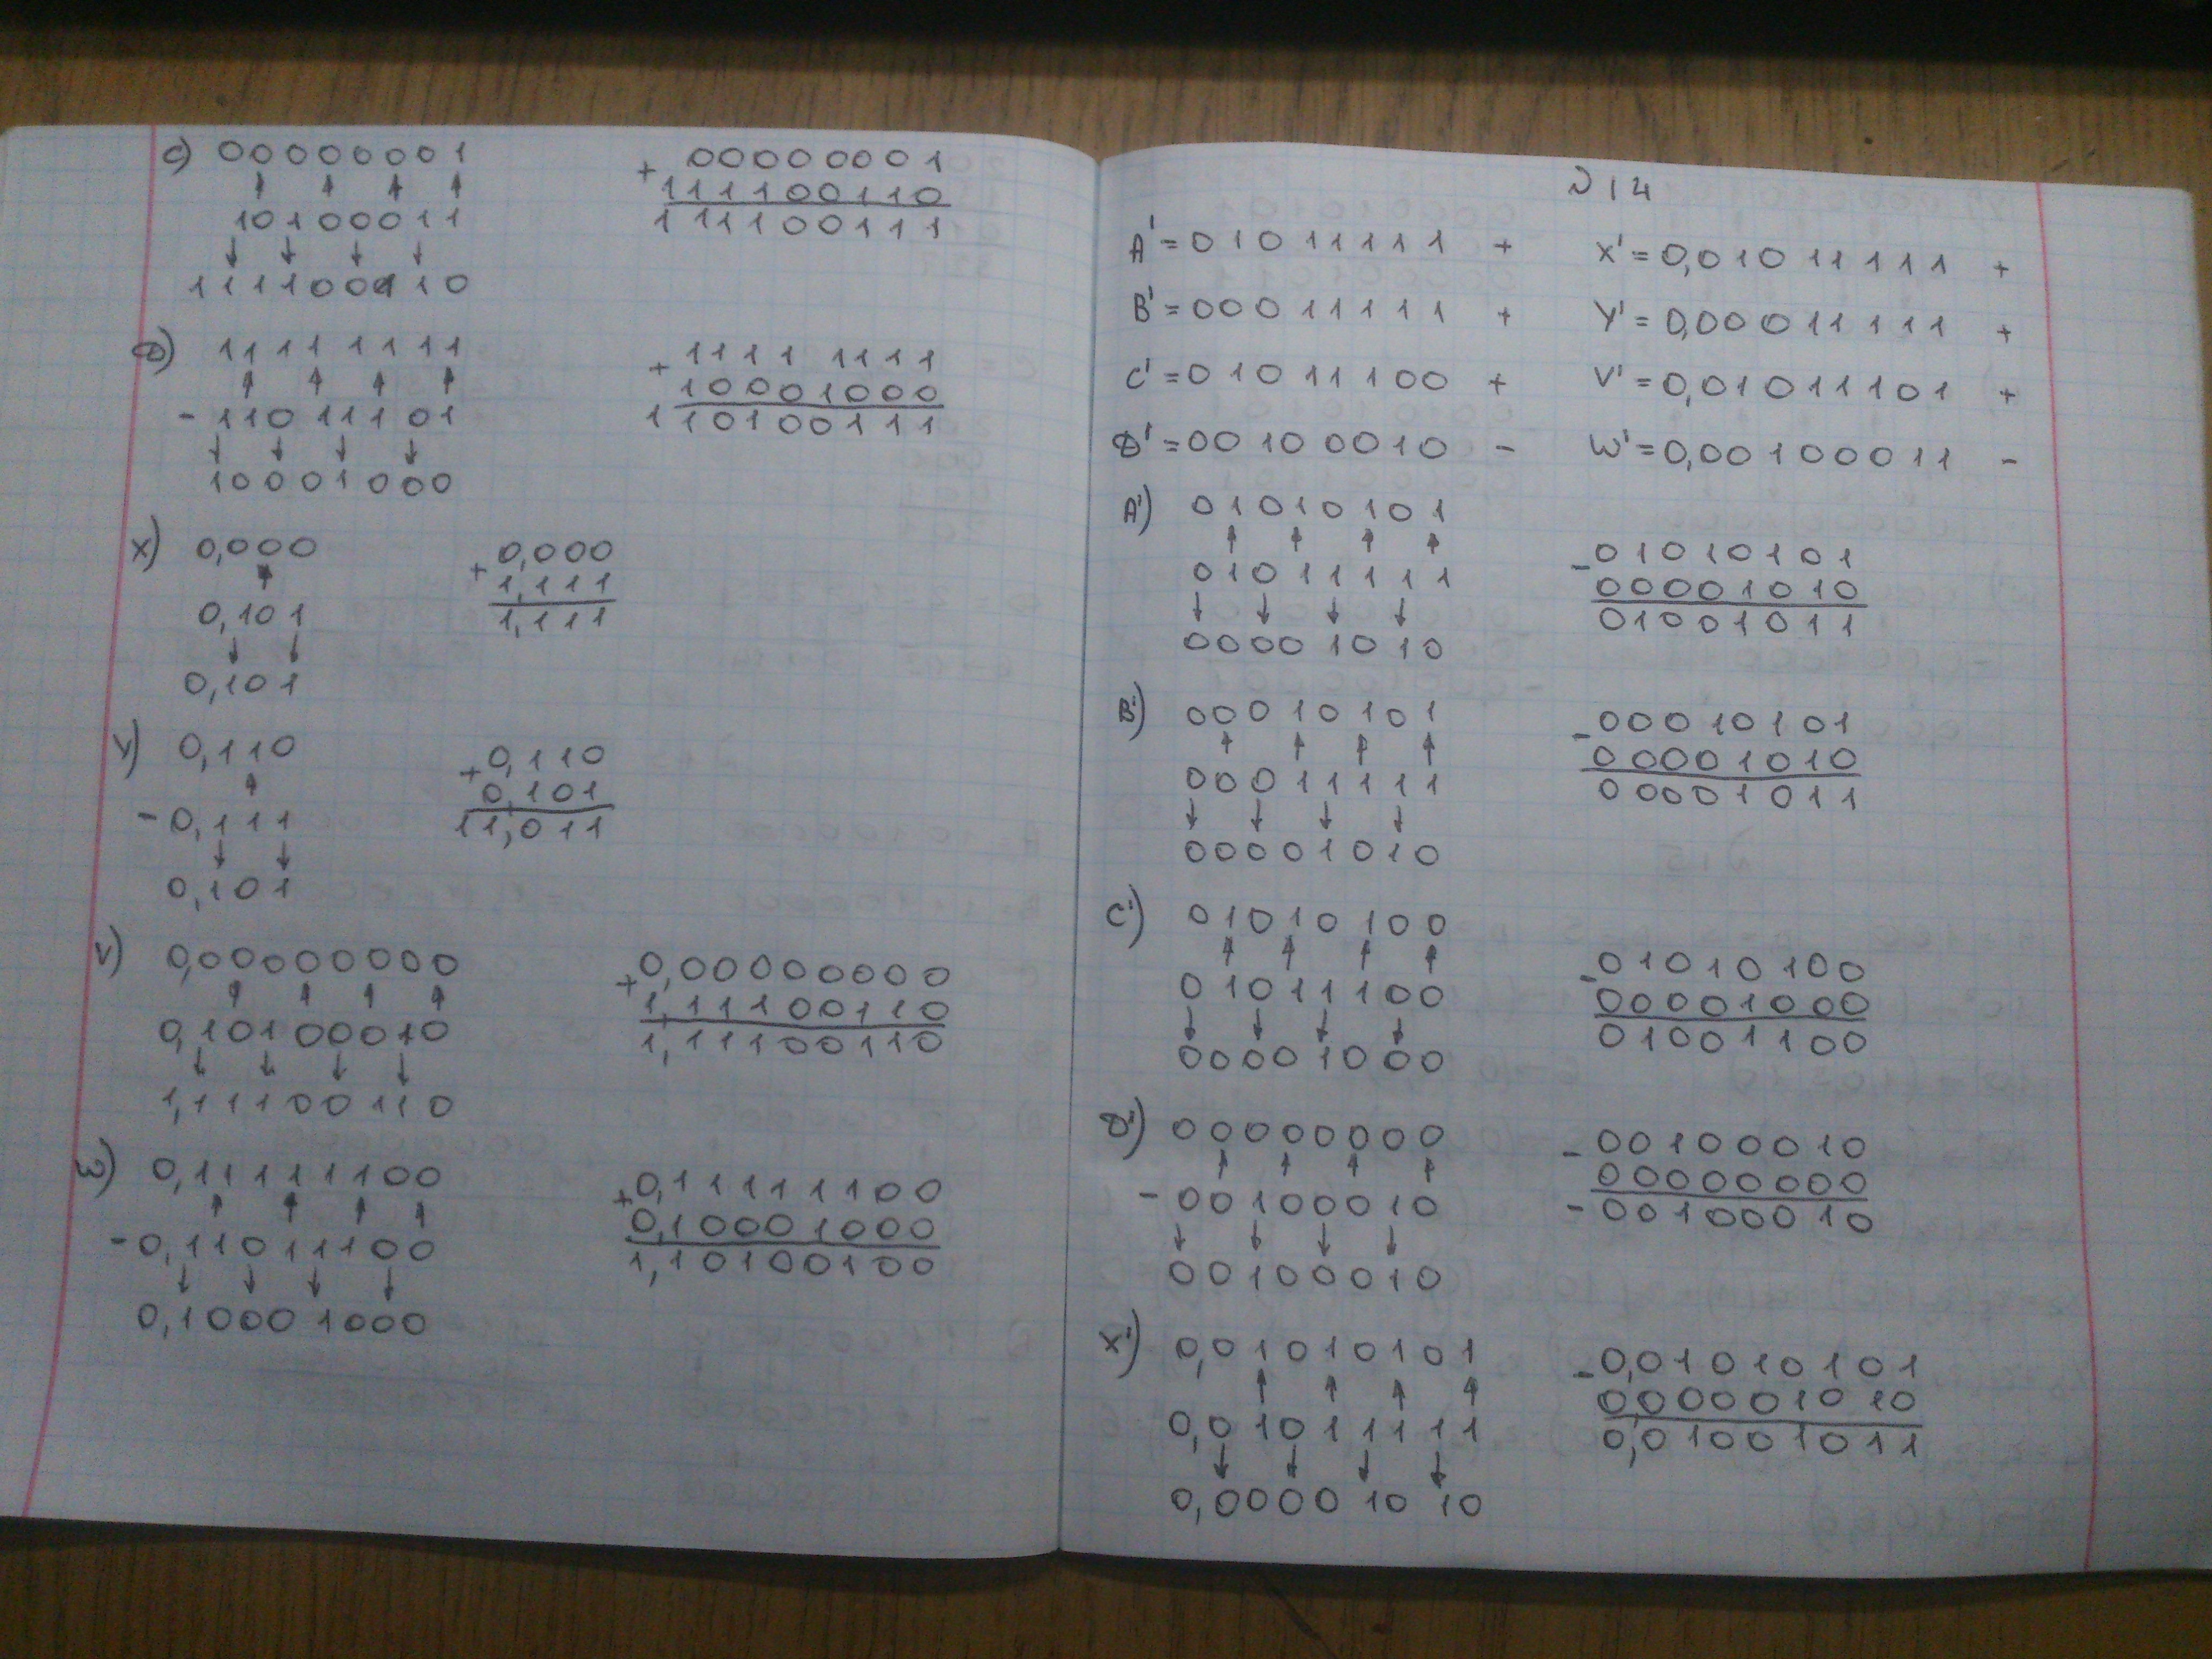 C) 00000001
↑ ↑ ↑ ↑
10100011
↓ ↓ ↓ ↓
111100110
+ 00000001
111100110
1 11100111
D) 1111 1111
↑ ↑ ↑ ↑
- 11011101
↓ ↓ ↓ ↓
10001000
+ 1111 1111
10001000
1 10100111
X) 0,000
↑
0,101
↓ ↓
0,101
+ 0,000
1,111
1,111
Y) 0,110
↑
- 0,111
↓ ↓
0,101
+ 0,110
0,101
11,011
V) 0,00000000
↑ ↑ ↑ ↑
0,10100010
↓ ↓ ↓ ↓
1,11100110
+ 0,00000000
1,11100110
1,11100110
W) 0,11111100
↑ ↑ ↑ ↑
- 0,11011100
↓ ↓ ↓ ↓
0,10001000
+ 0,11111100
0,10001000
1,10100100
N14
A' = 01011111 +
X' = 0,01011111 +
B' = 00011111 +
Y' = 0,00011111 +
C' = 01011100 +
V' = 0,01011101 +
D' = 00100010 -
W' = 0,00100011 -
A') 01010101
↑ ↑ ↑ ↑
01011111
↓ ↓ ↓ ↓
00001010
- 01010101
00001010
01001011
B') 00010101
↑ ↑ ↑ ↑
00011111
↓ ↓ ↓ ↓
00001010
- 00010101
00001010
00001011
C') 01010100
↑ ↑ ↑ ↑
01011100
↓ ↓ ↓ ↓
00001000
- 01010100
00001000
01001100
D') 00000000
↑ ↑ ↑ ↑
- 00100010
↓ ↓ ↓ ↓
00100010
- 00100010
00000000
- 00100010
X') 0,01010101
↑ ↑ ↑ ↑
0,01011111
↓ ↓ ↓ ↓
0,00001010
- 0,01010101
0,00001010
0,01001011